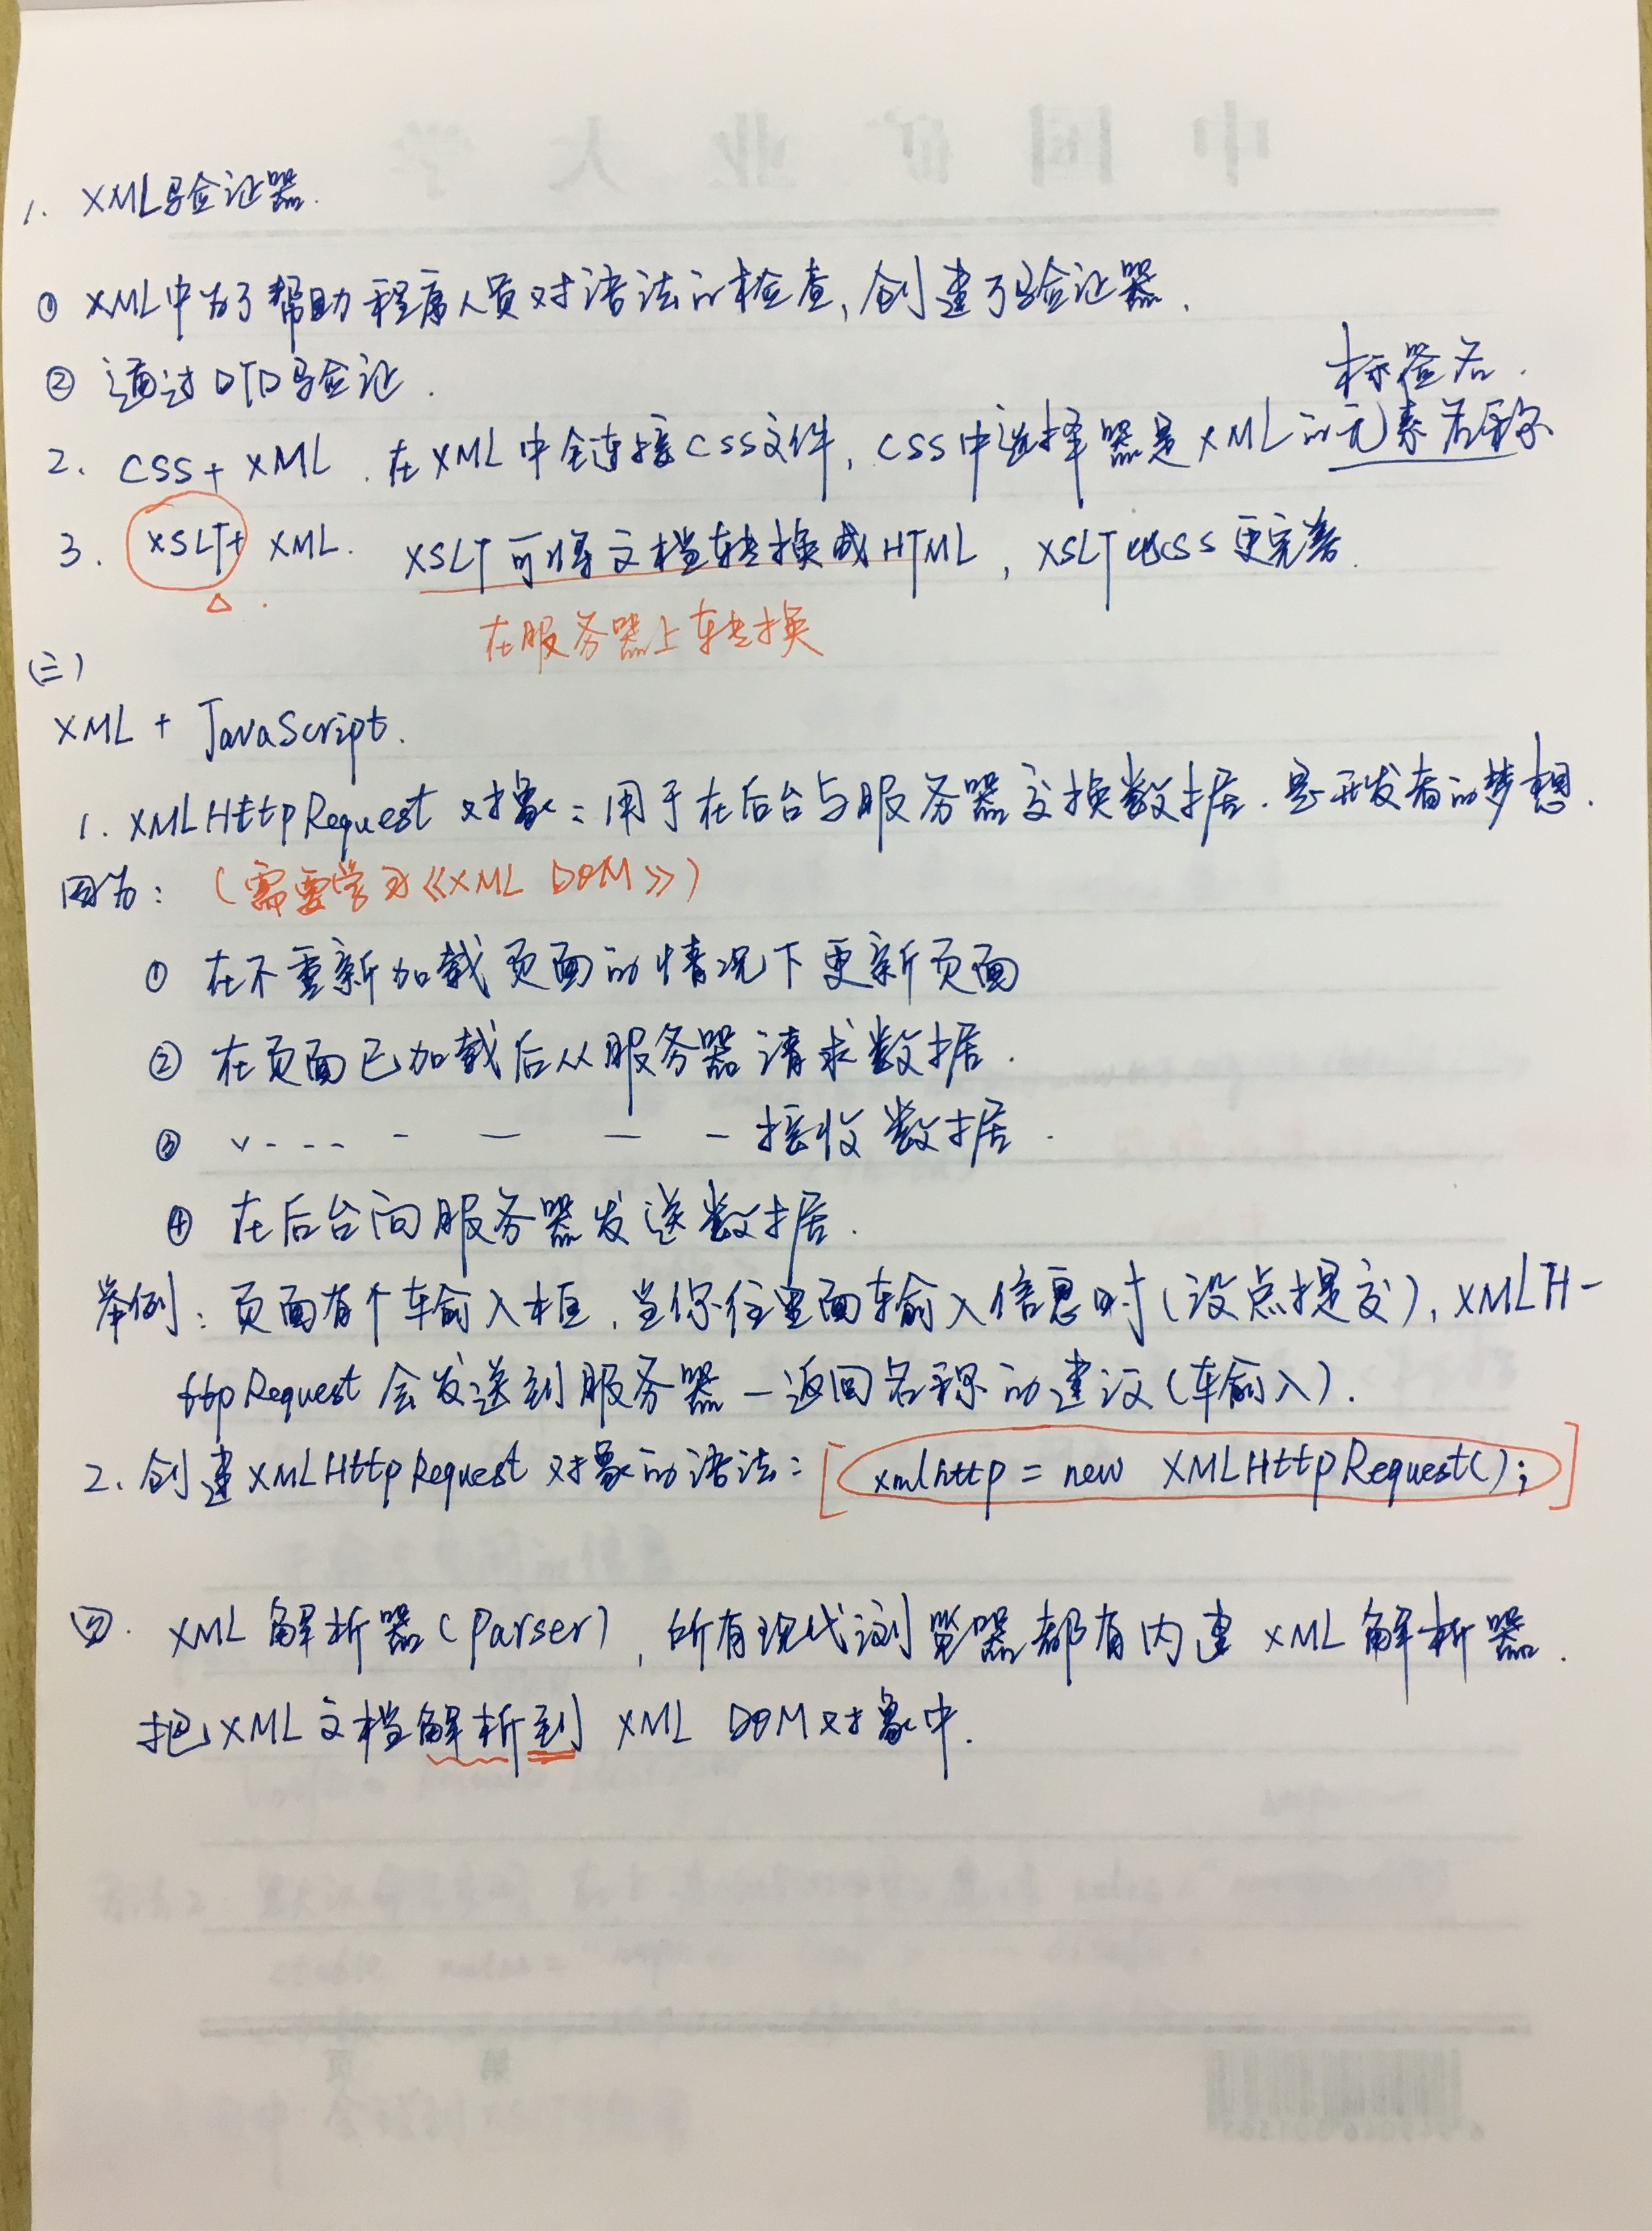 中国矿业大学
1. XML验证器.
① XML中为了帮助程序人员对语法的检查,创建了验证器.
② 通过DTD验证.
标签名.
2. CSS + XML. 在XML中会连接CSS文件, CSS中选择器是XML的元素名称
3. XSLT + XML. XSLT可将文档转换成HTML, XSLT比CSS更完善.
在服务器上转换
(三)
XML + JavaScript.
1. XMLHttpRequest 对象: 用于在后台与服务器交换数据. 是开发者的梦想.
因为: (需要学习《XML DOM》)
① 在不重新加载页面的情况下更新页面
② 在页面已加载后从服务器请求数据.
③ ﹀- - - - — — — 接收数据.
④ 在后台向服务器发送数据.
举例: 页面有个输入框, 当你往里面输入信息时(没点提交), XMLH-
ttpRequest 会发送到服务器 — 返回名称的建议(输入).
2. 创建XMLHttpRequest 对象的语法: [xmlhttp = new XMLHttpRequest();]
四. XML 解析器(Parser), 所有现代浏览器都有内建 XML 解析器.
把XML文档解析到 XML DOM对象中.
第 页